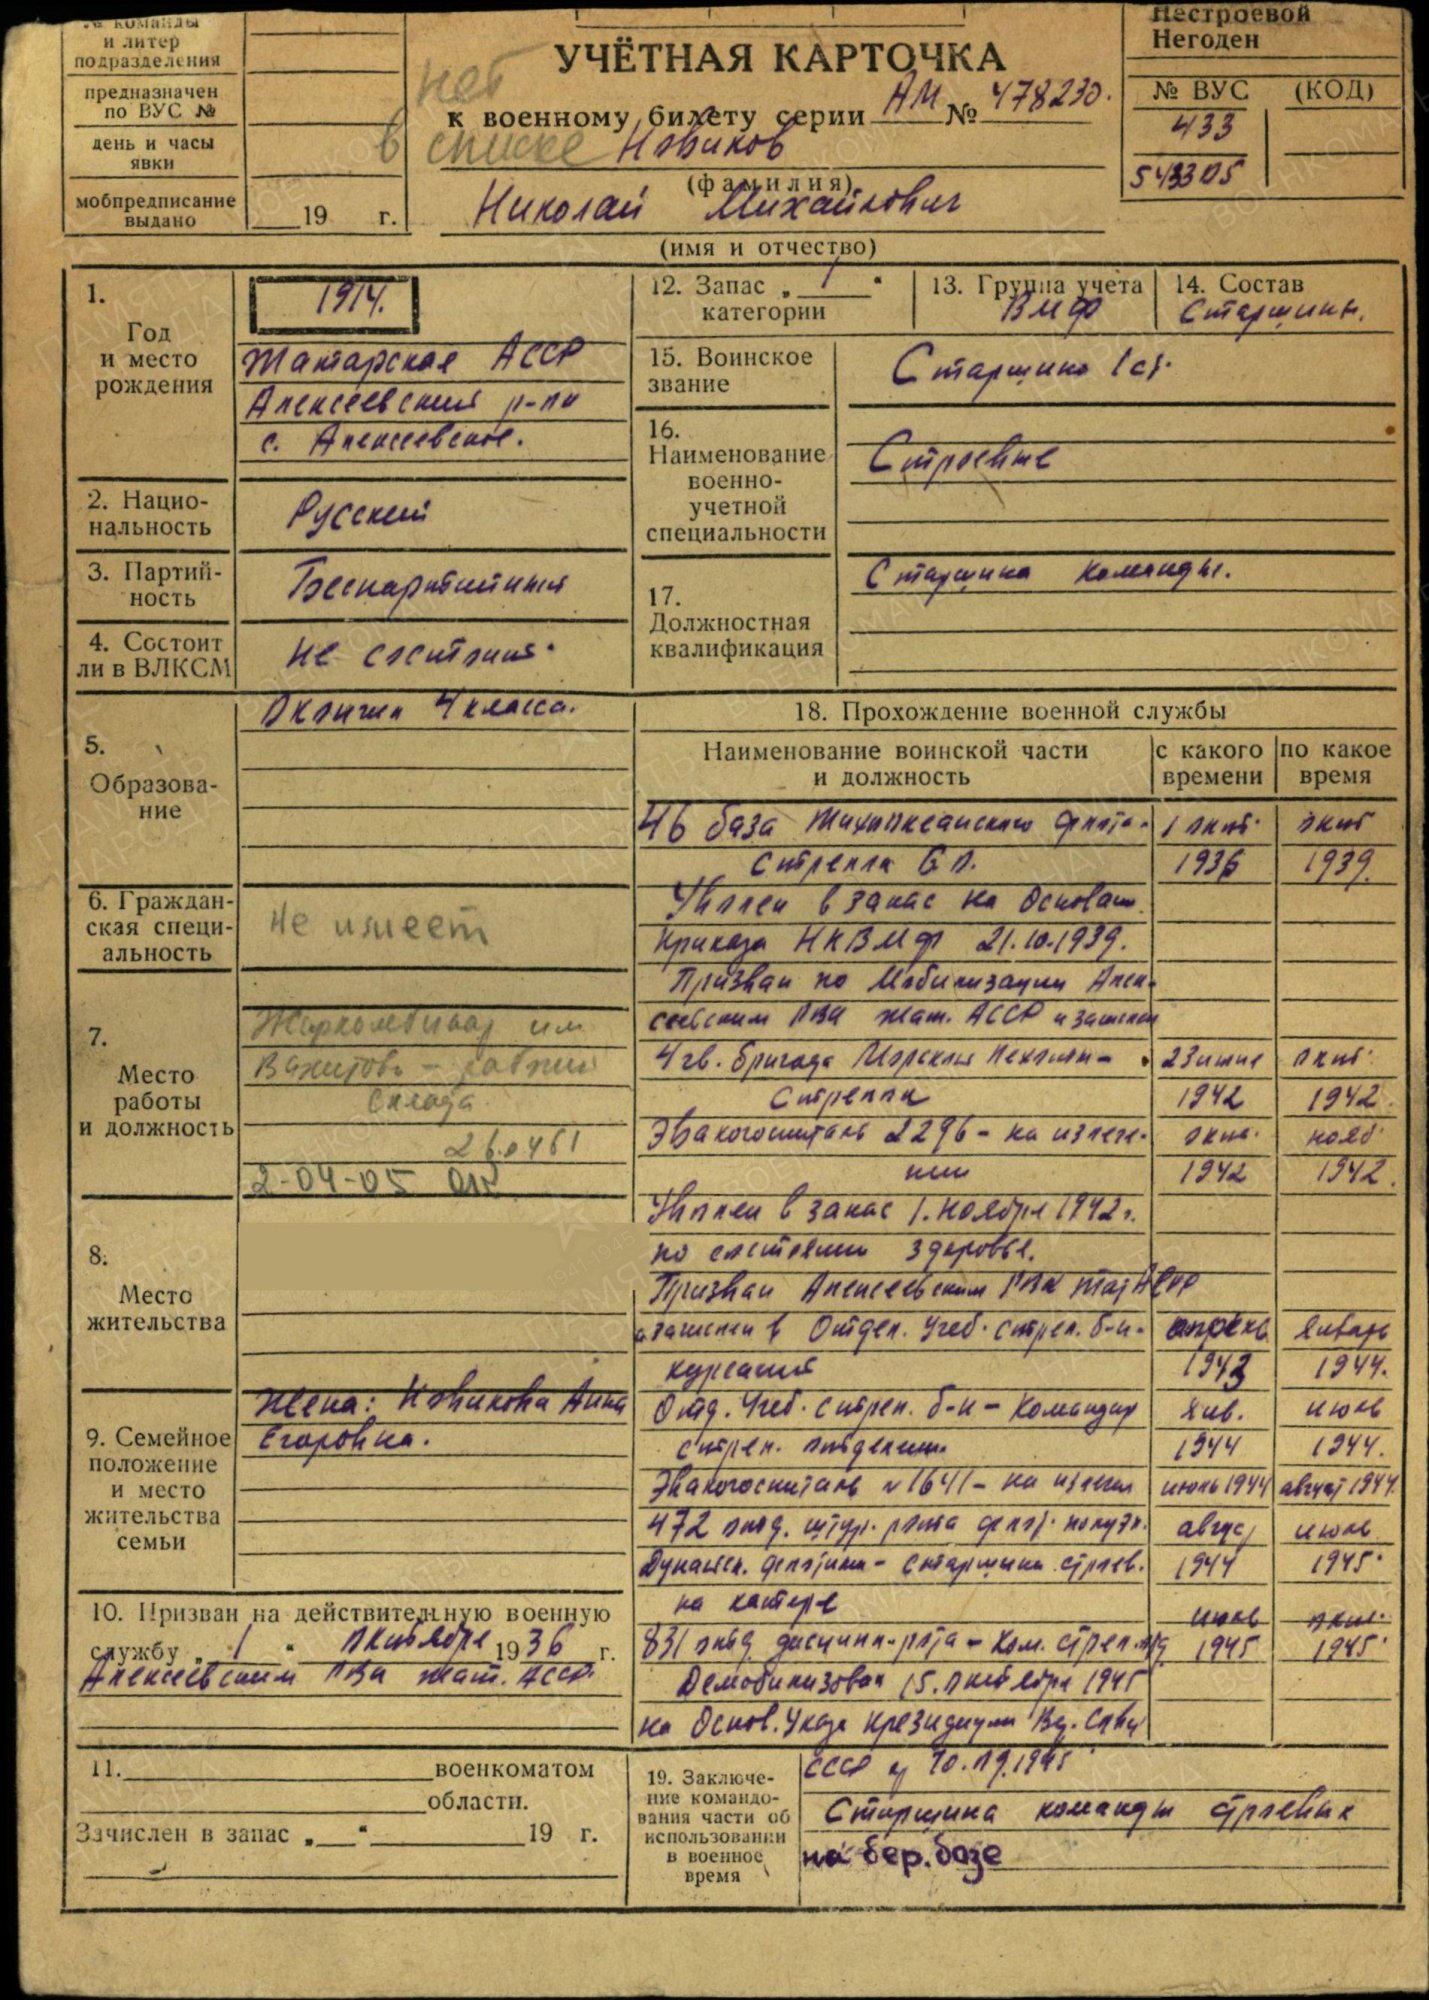 № команды
и литер
подразделения
предназначен
по ВУС №
день и часы
явки
мобпредписание
выдано
19 г.
УЧЁТНАЯ КАРТОЧКА
к военному билету серии АМ № 478230.
нет
в списке
Новиков
(фамилия)
Николай Михайлович
(имя и отчество)
Нестроевой
Негоден
№ ВУС (КОД)
433
543305
1.
Год
и место
рождения
1914.
Татарская АССР
Алексеевский р-он
с. Алексеевское.
2. Нацио-
нальность
Русский
3. Партий-
ность
Беспартийный
4. Состоит
ли в ВЛКСМ
Не состоит.
5.
Образова-
ние
Окончил 4 класса.
6. Граждан-
ская специ-
альность
Не имеет
7.
Место
работы
и должность
Жиркомбинат им
Вахитова - рабочий
склада
2-04-05
8.
Место
жительства
9. Семейное
положение
и место
жительства
семьи
Жена: Новикова Анна
Егоровна.
10. Призван на действительную военную
службу „1“ октября 1936 г.
Алексеевским РВК Тат. АССР.
11. военкоматом
области.
Зачислен в запас „ “ 19 г.
12. Запас „1“
категории
13. Группа учета
ВМФ
14. Состав
Старшин.
15. Воинское
звание
Старшина 1 ст.
16.
Наименование
военно-
учетной
специальности
Строевые
17.
Должностная
квалификация
Старшина команды.
18. Прохождение военной службы
Наименование воинской части
и должность
с какого
времени
по какое
время
46 база Тихоокеанского флота- 1 окт. окт
стрелок 1936 1939.
Уволен в запас на Основан.
приказа НКВМФ 21.10.1939.
Призван по Мобилизации Алек-
сеевским РВК Тат. АССР и зачислен
4 гв. бригада Морской Пехоты- 23 июня окт.
стрелок 1942 1942.
Эвакогоспиталь 2296 - на излече- окт. нояб.
нии 1942 1942.
Уволен в запас 1. ноября 1942 г.
по состоянию здоровья.
Призван Алексеевским РВК Тат АССР
и зачислен в Отдел. Учеб. стрел. б-н- апрель январь
курсант 1943 1944.
Отд. Учеб. стрел. б-н - Командир янв. июль
стрел. отделения 1944 1944.
Эвакогоспиталь №1641 - на излечен июль 1944 август 1944.
472 отд. штур. рота август июль
Дунайск. флотилии - Старшина строев. 1944 1945.
на катере
831 отд. дисципл. рота - ком. стрел. отд. июль 1945 окт. 1945.
Демобилизован 15. октября 1945
на Основ. Указа Президиума Вер. Совет
СССР от 10.09.1945
19. Заключе-
ние командо-
вания части об
использовании
в военное
время
Старшина команды строевых
на бер. базе